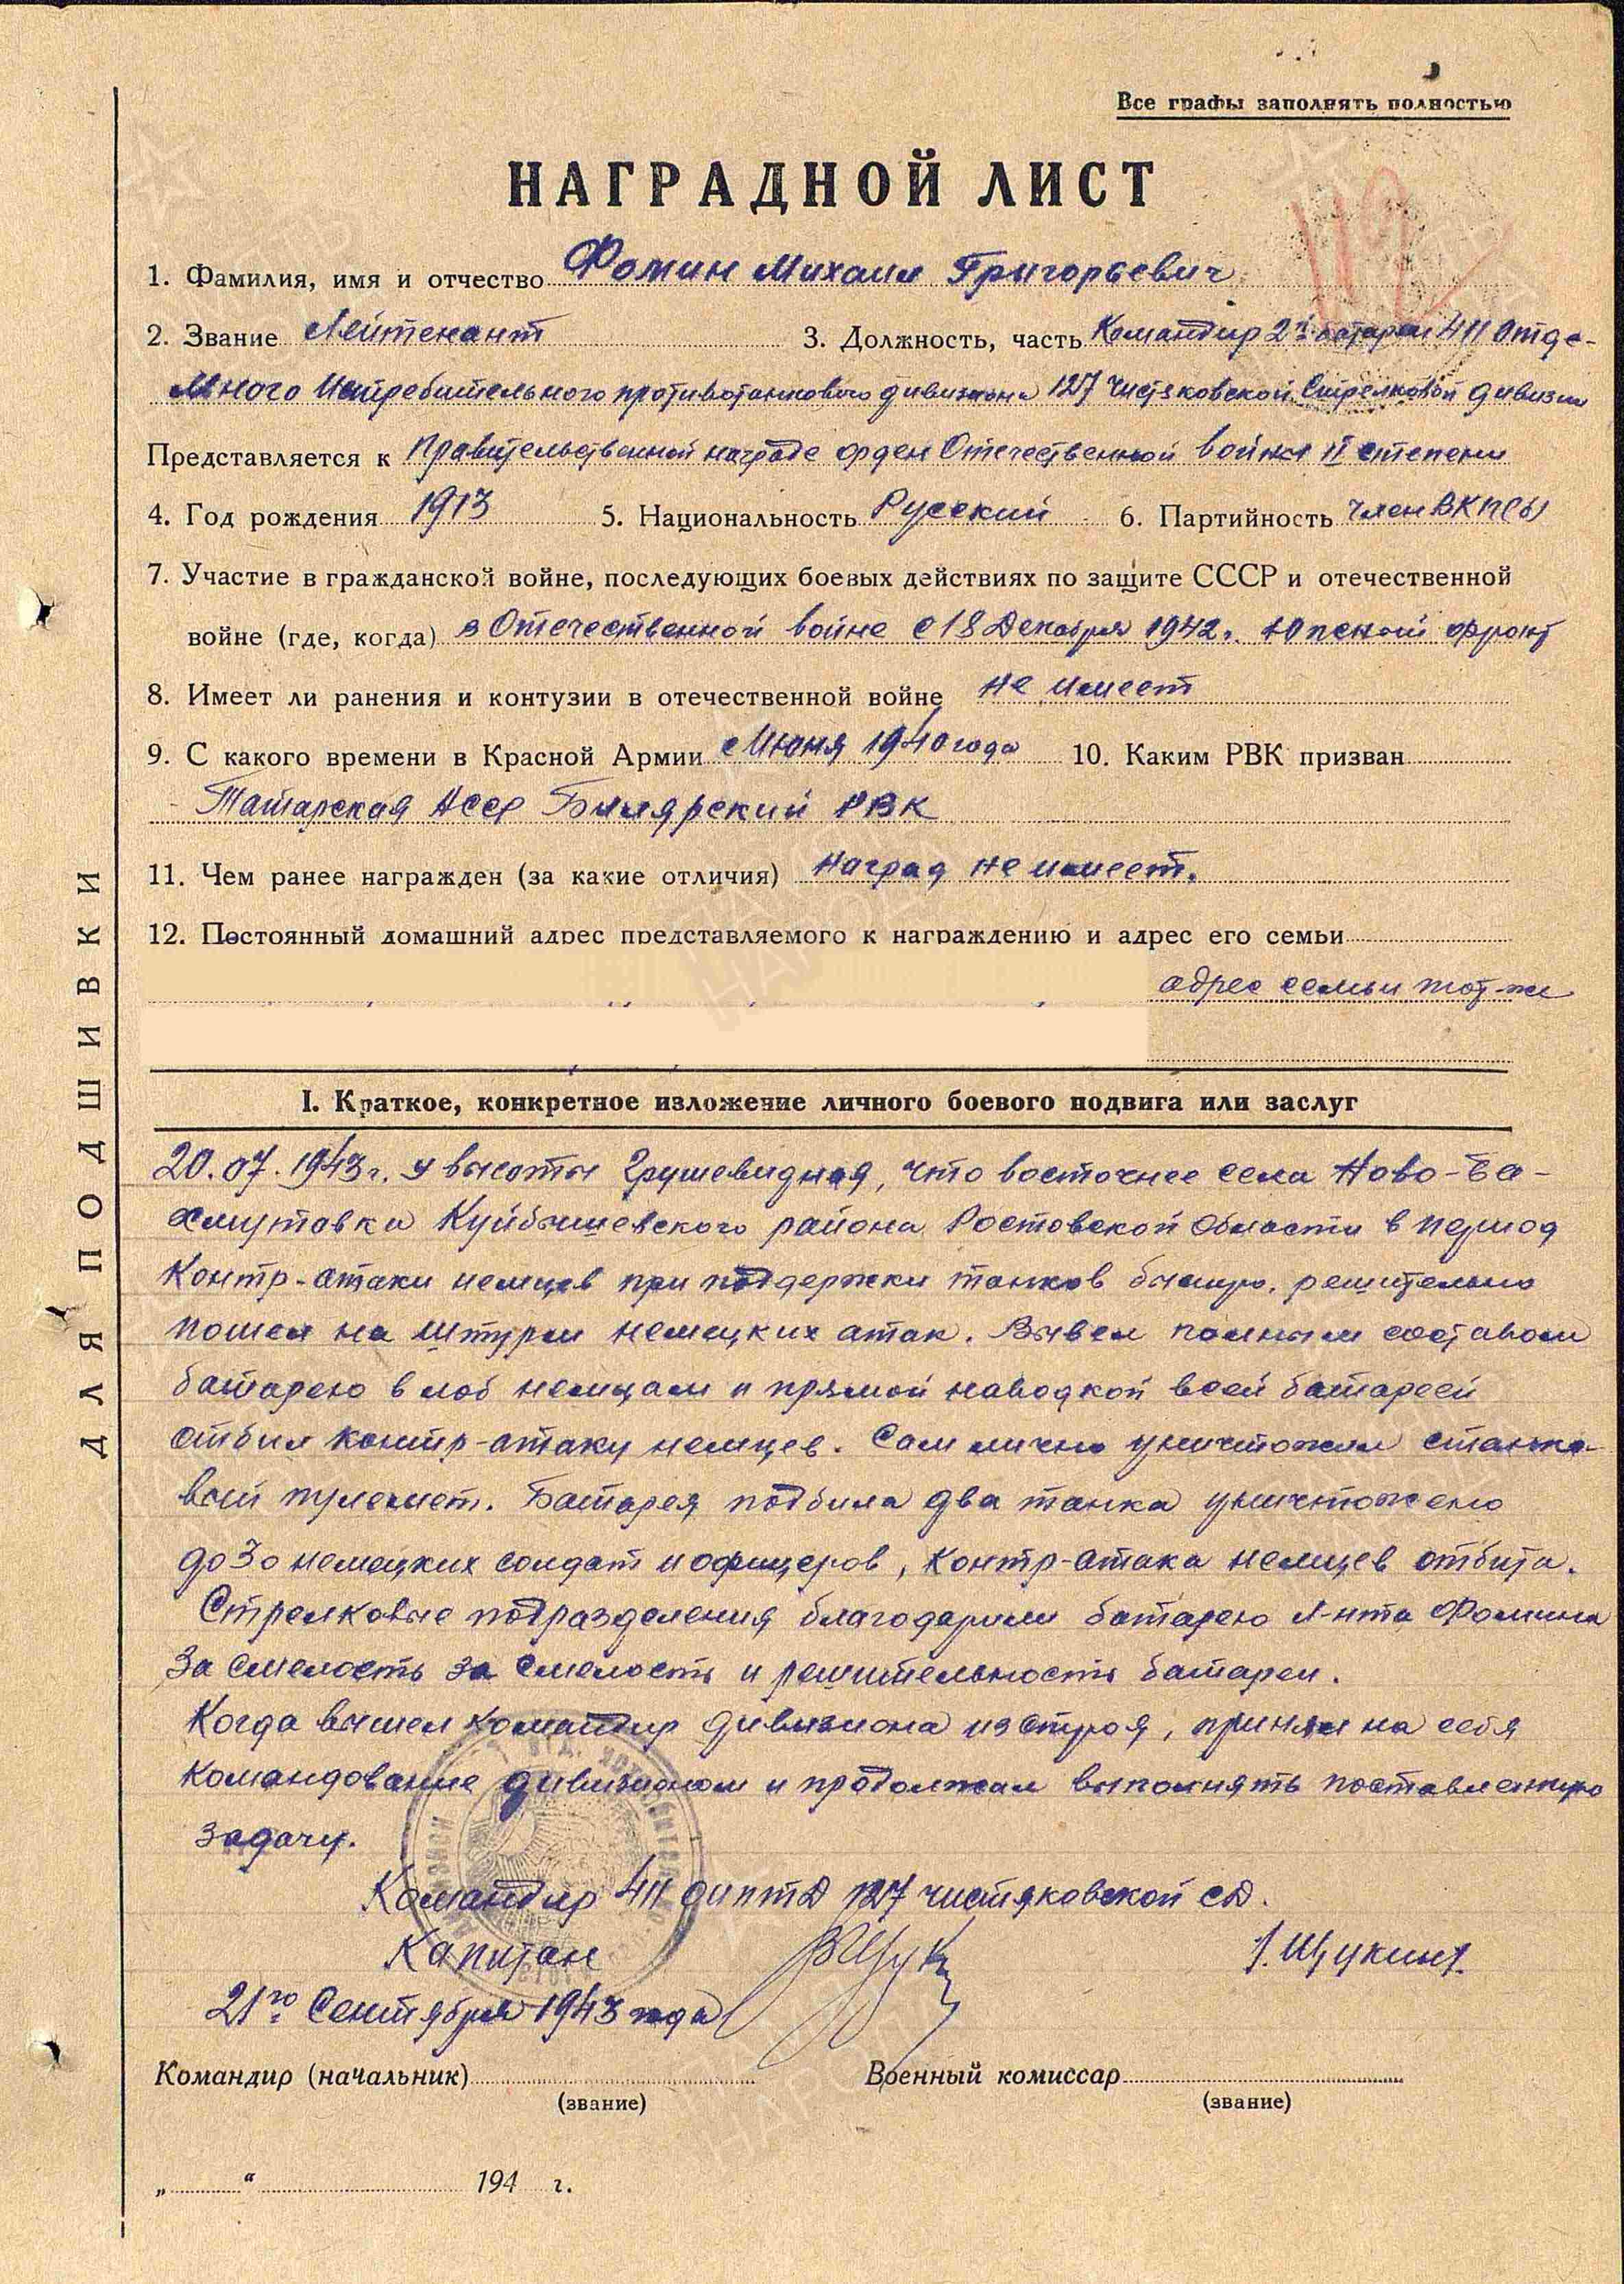 Все графы заполнять полностью
НАГРАДНОЙ ЛИСТ
1. Фамилия, имя и отчество Фомин Михаил Григорьевич
2. Звание Лейтенант 3. Должность, часть Командир 2й батареи 411 Отде-
льного Истребительного противотанкового дивизиона 127 Чистяковской Стрелковой дивизии
Представляется к Правительственной награде орден Отечественной войны II степени
4. Год рождения 1913 5. Национальность Русский 6. Партийность член ВКП(б)
7. Участие в гражданской войне, последующих боевых действиях по защите СССР и отечественной
войне (где, когда) в Отечественной войне с 18 Декабря 1942г. фронт
8. Имеет ли ранения и контузии в отечественной войне не имеет
9. С какого времени в Красной Армии с Июня 1940 года 10. Каким РВК призван
Татарская АССР Билярский РВК
11. Чем ранее награжден (за какие отличия) наград не имеет.
12. Постоянный домашний адрес представляемого к награждению и адрес его семьи
адрес семьи тот-же
I. Краткое, конкретное изложение личного боевого подвига или заслуг
20.07.1943г. у высоты Грушевидная, что восточнее села Ново-Ба-
хмутовки Куйбышевского района Ростовской Области в период
Контр-атаки немцев при поддержки танков быстро, решительно
пошел на штурм немецких атак. Вывел полным составом
батарею в лоб немцам и прямой наводкой всей батареей
отбил контр-атаку немцев. Сам лично уничтожил станко-
вый пулемет. Батарея подбила два танка уничтожено
до 30 немецких солдат и офицеров, контр-атака немцев отбита.
Стрелковые подразделения благодарили батарею Л-нта Фомина
За смелость за смелость и решительность батареи.
Когда вышел командир дивизиона из строя, принял на себя
командование дивизионом и продолжал выполнять поставленную
задачу.
Командир 411 оиптд 127 чистяковской сд.
Капитан /. Щукин /.
21го Сентября 1943 года
Командир (начальник) Военный комиссар
(звание) (звание)
„ “ 194 г.
ДЛЯ ПОДШИВКИ